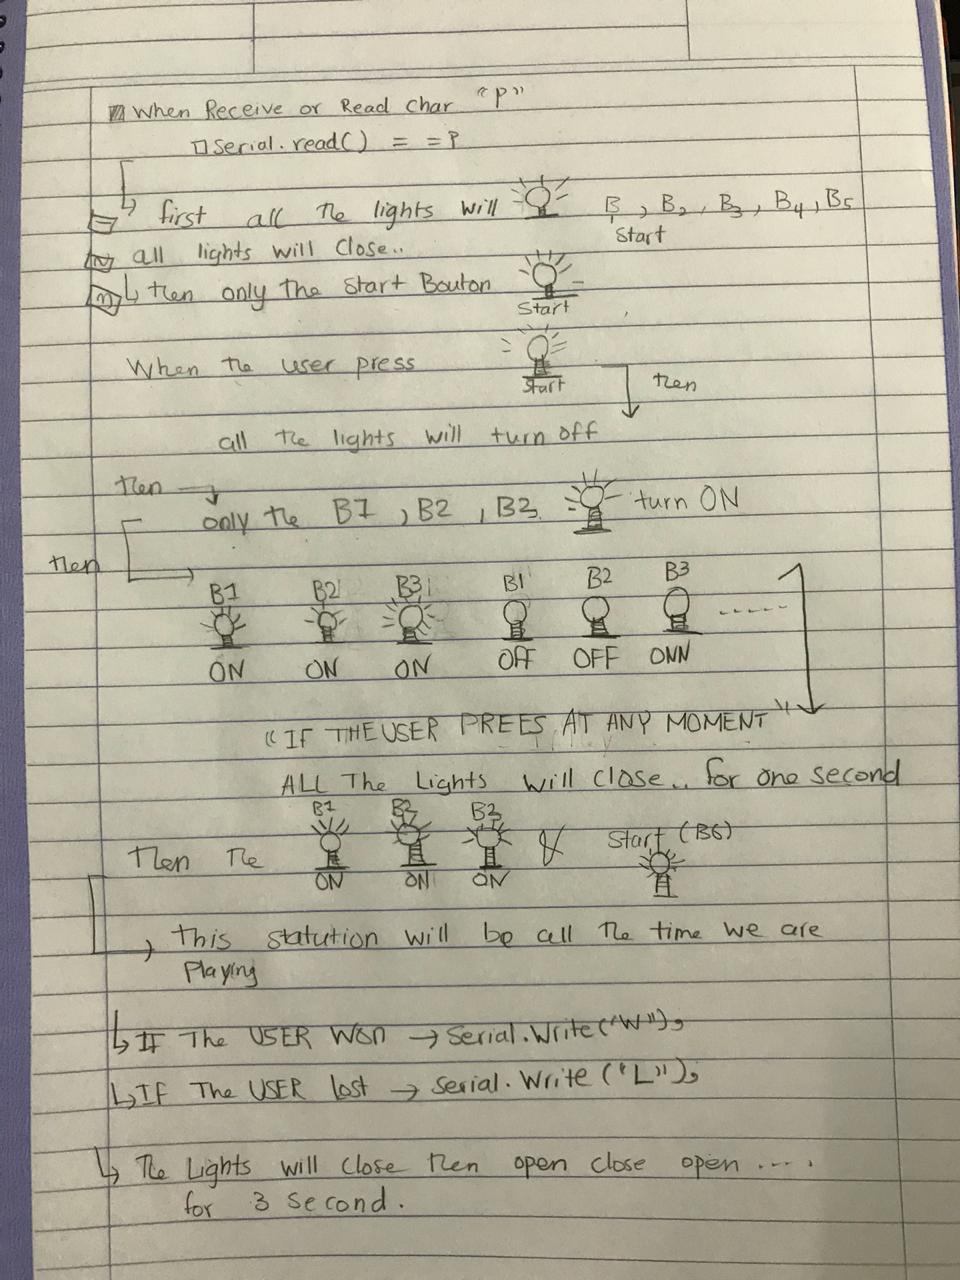 When Receive or Read Char "P"
Serial.read() = =P
first all the lights will B1, B2, B3, B4, B5
Start
all lights will Close..
then only the Start Bouton
Start
When the user press
Start
then
all the lights will turn off
then
only the B1, B2, B3 turn ON
then
B1 B2 B3 B1 B2 B3
ON ON ON OFF OFF ONN
"IF THE USER PREES AT ANY MOMENT"
ALL The Lights will close.. for one second
B1 B2 B3
Then the & Start (B6)
ON ON ON
This statution will be all the time we are
Playing
IF The USER WON → Serial.Write("W");
IF The USER Lost → Serial.Write("L");
The Lights will close then open close open ....
for 3 second.